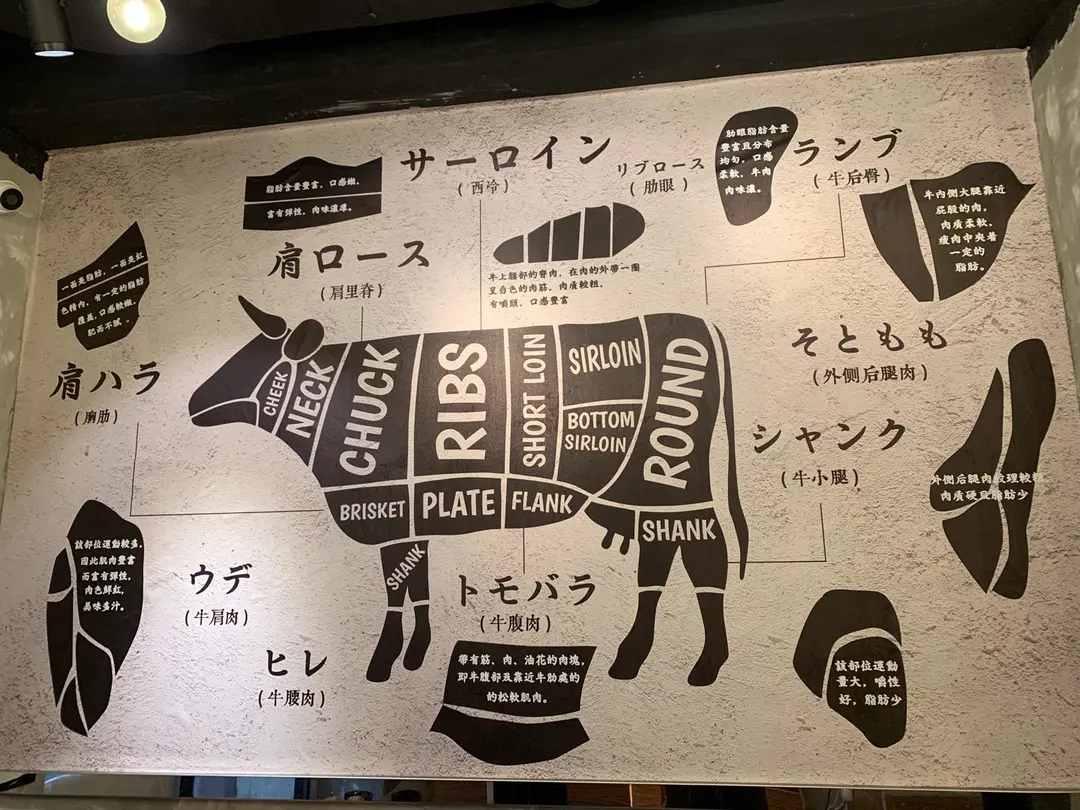 サーロイン
(西冷)
脂肪含量豐富、口感嫩,
富有彈性,肉味濃厚。
リブロース
(肋眼)
肋眼脂肪含量
豐富且分布
均匀,口感
柔軟,牛肉
肉味濃。
ランプ
(牛后臀)
牛内側大腿靠近
屁股的肉,
肉質柔軟,
瘦肉中夾着
一定的
脂肪。
肩ロース
(肩里脊)
牛上腦部的脊肉,在肉的外帶一圈
呈白色的肉筋,肉質較粗,
有嚼頭,口感豐富
一面是脂肪,一面是紅
色精肉,有一定的脂肪
覆蓋,口感較嫩,
肥而不膩。
肩ハラ
(胸肋)
そともも
(外側后腿肉)
外側后腿肉紋理較粗
肉質硬且脂肪少
シャンク
(牛小腿)
CHEEK
NECK
CHUCK
RIBS
SHORT LOIN
SIRLOIN
BOTTOM
SIRLOIN
ROUND
BRISKET
PLATE
FLANK
SHANK
SHANK
該部位運動較多,
因此肌肉豐富
而富有彈性,
肉色鮮紅,
美味多汁。
ウデ
(牛肩肉)
ヒレ
(牛腰肉)
トモバラ
(牛腹肉)
帶有筋、肉、油花的肉塊,
即牛腹部及靠近牛肋處的
的松軟肌肉。
該部位運動
量大,嚼性
好,脂肪少